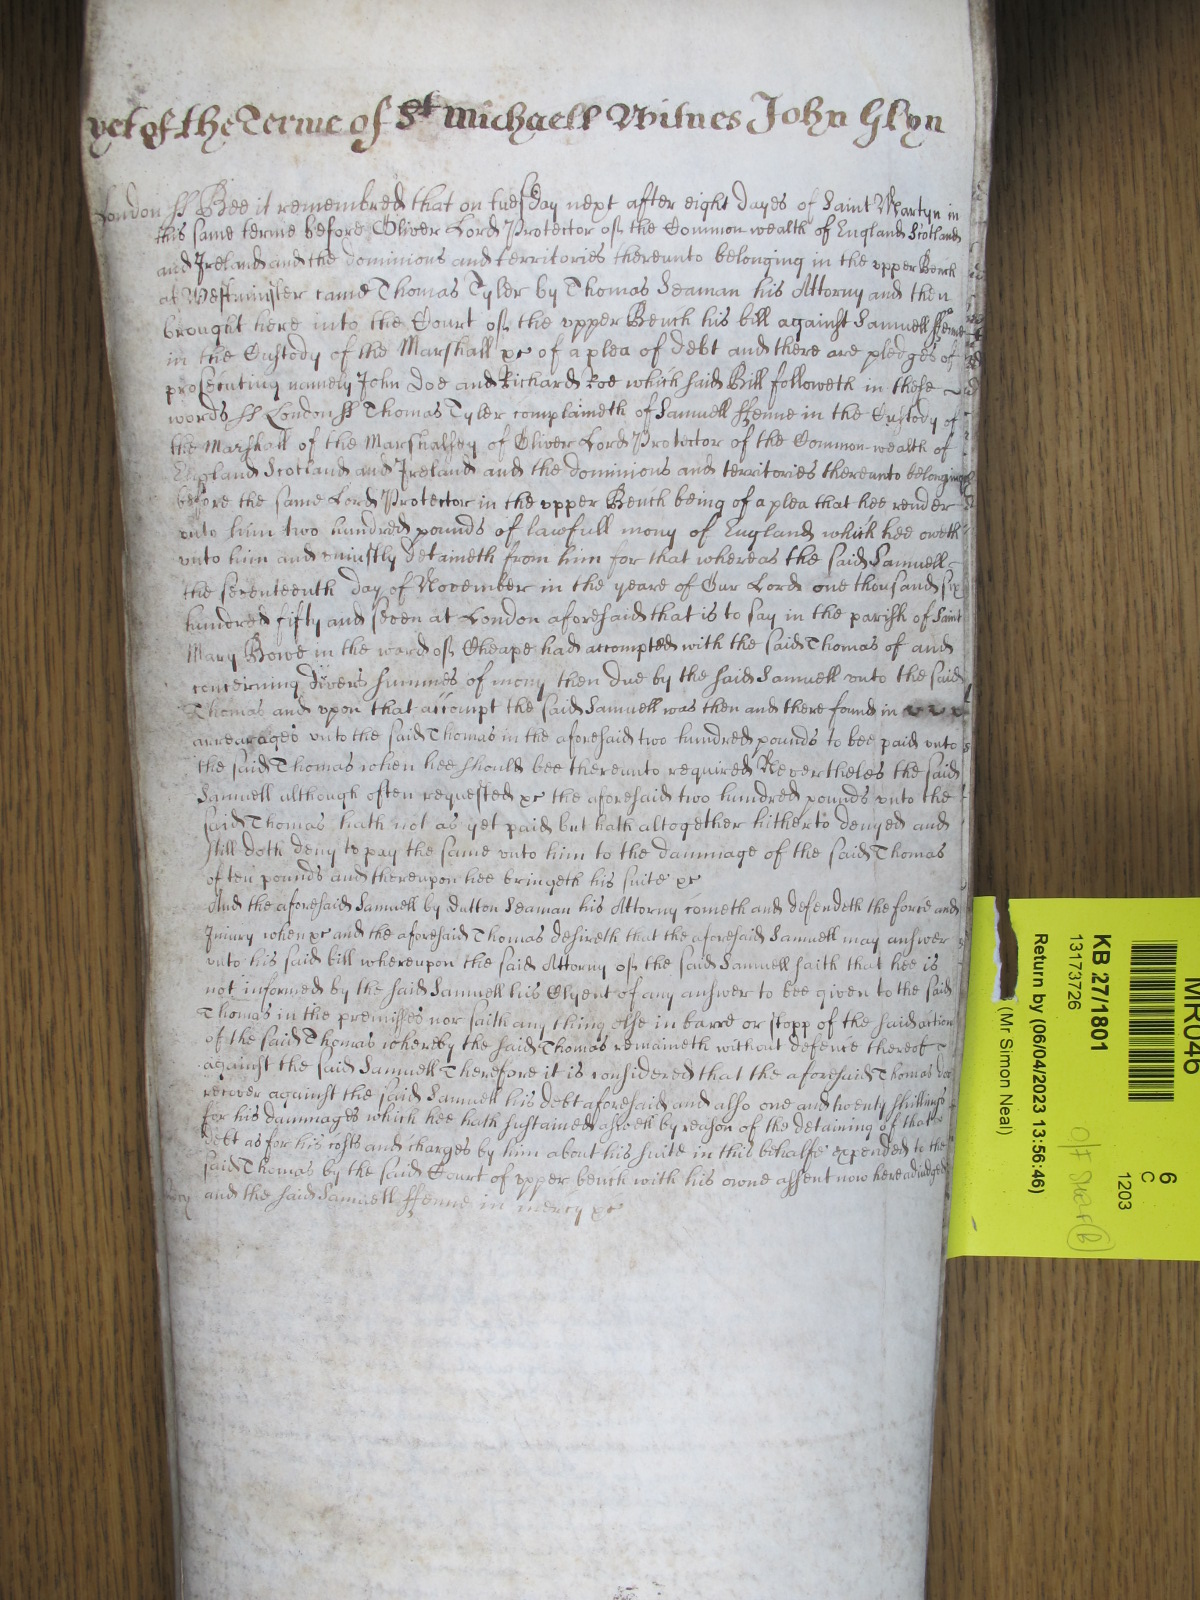 yet of the Terme of St Michaell Witnes John Glyn
London ss Bee it remembred that on tuesday next after eight dayes of Saint Martyn in
this same terme before Oliver Lord Protector of the Common-wealth of England Scotland
and Ireland and the dominions and territories thereunto belonging in the vpper Bench
at Westminster came Thomas Tyler by Thomas Seaman his Attorny and then
brought here into the Court of the vpper Bench his bill against Samuell ffenne
in the Custody of the Marshall xc of a plea of debt and there are pledges of
prosecuting namely John Doe and Richard Roe which said Bill followeth in these
words ss London ss Thomas Tyler complaineth of Samuell ffenne in the Custody of
the Marshall of the Marshalsey of Oliver Lord Protector of the Common-wealth of
England Scotland and Ireland and the dominions and territories thereunto belonging
before the same Lord Protector in the vpper Bench being of a plea that hee render
vnto him two hundred pounds of lawfull mony of England which hee oweth
vnto him and uniustly detaineth from him for that whereas the said Samuell
the seventeenth day of November in the yeare of Our Lord one thousand six
hundred fifty and seven at London aforesaid that is to say in the parish of Saint
Mary Bowe in the ward of Cheape had accompted with the said Thomas of and
concerning divers summes of mony then due by the said Samuell vnto the said
Thomas and vpon that accompt the said Samuell was then and there found in
arrearages vnto the said Thomas in the aforesaid two hundred pounds to bee paid vnto
the said Thomas when hee should bee thereunto required Nevertheles the said
Samuell although often requested xc the aforesaid two hundred pounds vnto the
said Thomas hath not as yet paid but hath altogether hitherto denyed and
still doth deny to pay the same vnto him to the dammage of the said Thomas
of ten pounds and thereupon hee bringeth his suite xc
And the aforesaid Samuell by Dutton Seaman his Attorny cometh and defendeth the force and
Iniury when xc and the aforesaid Thomas desireth that the aforesaid Samuell may answer
vnto his said bill whereupon the said Attorny of the said Samuell saith that hee is
not informed by the said Samuell his Clyent of any answer to bee given to the said
Thomas in the premisses nor saith any thing else in barre or stopp of the said action
of the said Thomas whereby the said Thomas remaineth without defence thereof
against the said Samuell Therefore it is considered that the aforesaid Thomas doe
recover against the said Samuell his debt aforesaid and also one and twenty shillings
for his dammages which hee hath sustained aswell by reason of the detaining of that
debt as for his costs and charges by him about his suite in this behalfe expended to the
said Thomas by the said Court of vpper bench with his owne assent now here adiudged
and the said Samuell ffenne in mercy xc
MR046
KB 27/1801
13173726
Return by (06/04/2023 13:56:46)
(Mr Simon Neal)
6
C
1203